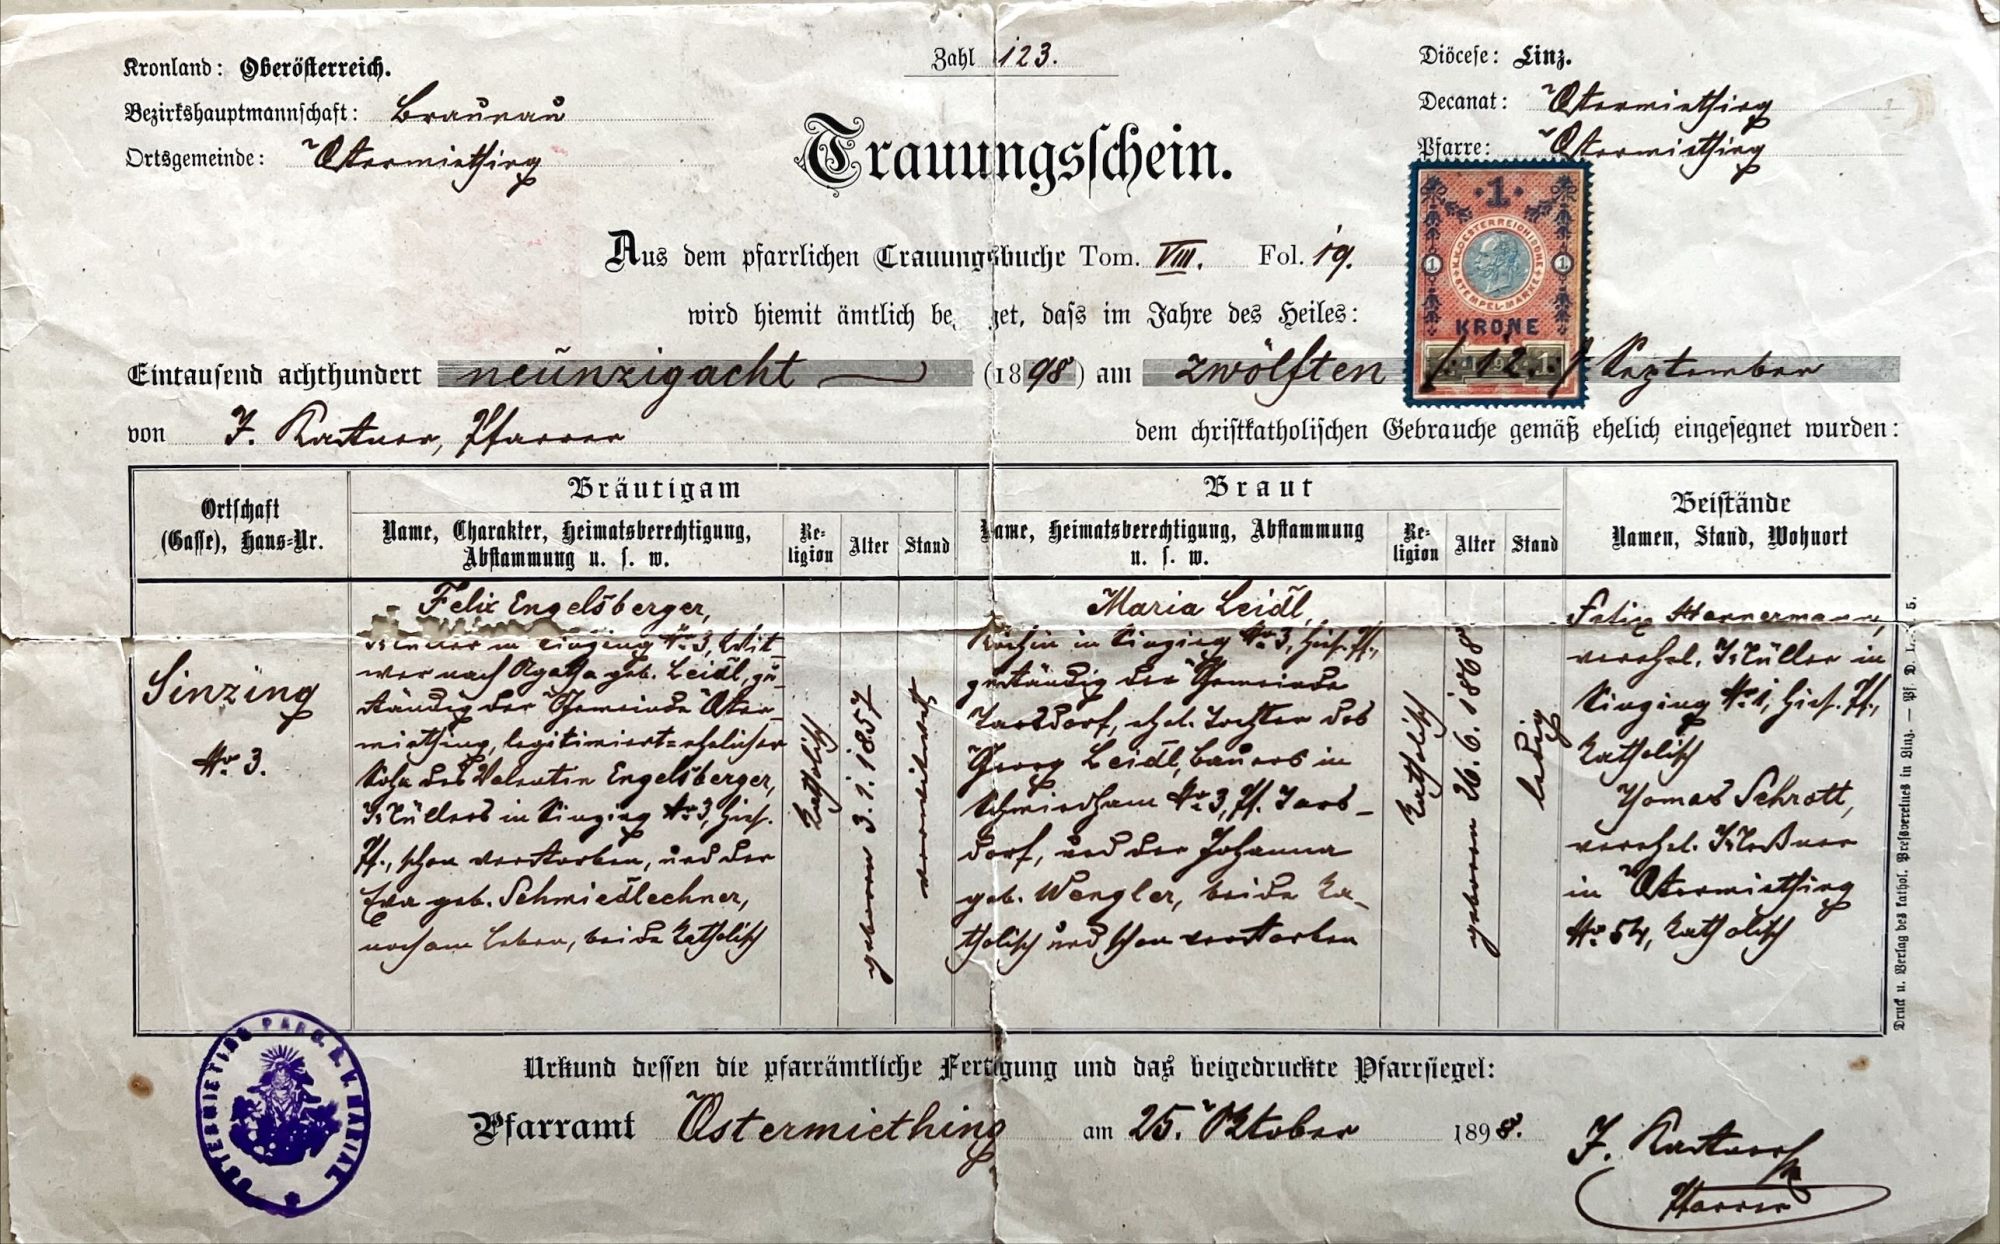 Kronland: Oberösterreich.
Bezirkshauptmannschaft: Braunau
Ortsgemeinde: Ostermiething
Zahl 123.
Diöcese: Linz.
Decanat: Ostermiething
Pfarre: Ostermiething
Trauungsschein.
1
K.K. OESTERREICHISCHE STEMPEL-MARKE
1 1
KRONE
Aus dem pfarrlichen Trauungsbuche Tom. VIII. Fol. 19.
wird hiemit ämtlich be get, dass im Jahre des Heiles:
Eintausend achthundert neunzigacht (1898) am zwölften /: 12. :/ September
von J. Kastner, Pfarrer dem christkatholischen Gebrauche gemäß ehelich eingesegnet wurden:
Ortschaft
(Gasse), Haus=Nr.
Bräutigam
Name, Charakter, Heimatsberechtigung,
Abstammung u. s. w.
Re-
ligion
Alter
Stand
Braut
Name, Heimatsberechtigung, Abstammung
u. s. w.
Re-
ligion
Alter
Stand
Beistände
Namen, Stand, Wohnort
Sinzing
Nr. 3.
Felix Engelsberger,
in Sinzing Nr. 3, Wit-
wer nach Agatha geb. Leidl, zu-
ständig der Gemeinde Oster-
miething, legitimiert=ehelicher
Sohn des Valentin Engelsberger,
Müllers in Sinzing Nr. 3, hies.
Pf., schon verstorben, und der
Eva geb. Schmiedlechner,
noch am Leben, beide katholisch
katholisch
geboren 3. 1. 1857
verwitwet
Maria Leidl,
Köchin in Sinzing Nr. 3, hies. Pf.,
zuständig der Gemeinde
Tarsdorf, ehel. Tochter des
Georg Leidl, Bauers in
Schmiedham Nr. 3, Pf. Tars-
dorf, und der Johanna
geb. Wengler, beide ka-
tholisch und schon verstorben
katholisch
geboren 26. 6. 1868
ledig
Felix Hennermann,
verehel. Müller in
Sinzing Nr. 1, hies. Pf.,
katholisch
Thomas Schrott,
verehel. Meßner
in Ostermiething
Nr. 54, katholisch
Druck u. Verlag des kathol. Pressvereines in Linz. — Pf. D. L. 5.
Urkund dessen die pfarrämtliche Fertigung und das beigedruckte Pfarrsiegel:
Pfarramt Ostermiething am 25. Oktober 1898.
J. Kastner
Pfarrer
OSTERMIETING PARO. B. V. MARIAE